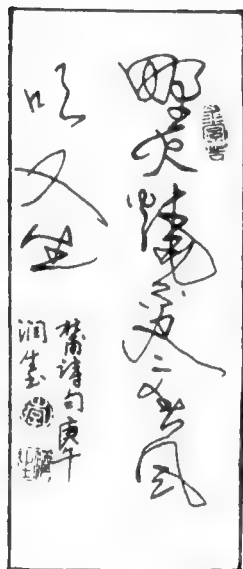 野火燒不尽春风
吹又生
詩句庚午
润生